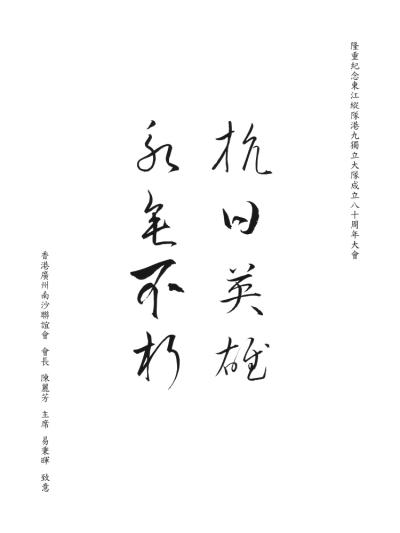 隆重紀念東江縱隊港九獨立大隊成立八十周年大會
抗日英雄
永垂不朽
香港廣州南沙聯誼會 會長 陳麗芳 主席 易秉暉 致意